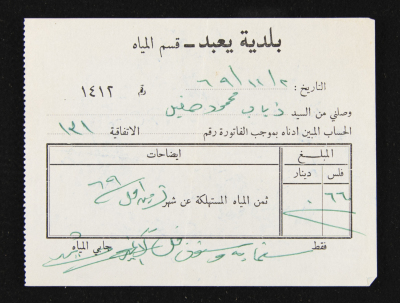 بلدية يعبد ـ قسم المياه
التاريخ : ٢/١٢/٦٩ رقم ١٤١٢
وصلني من السيد ذياب محمود
الحساب المبين ادناه بموجب الفاتورة رقم الاتفاقية ١٣١
المبلــغ ايضاحات
فلس دينار
٦٦٠ ٠ ثمن المياه المستهلكة عن شهر تشرين اول ٦٩
فقط ستماية وستون فلس جابي المياه